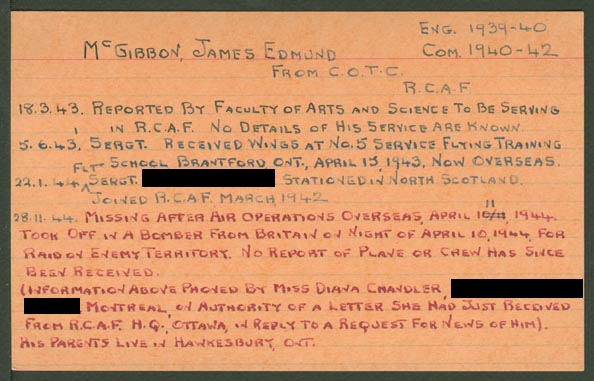 ENG. 1939-40
McGIBBON, JAMES EDMUND COM. 1940-42
FROM C.O.T.C.
R.C.A.F
18.3.43. REPORTED BY FACULTY OF ARTS AND SCIENCE TO BE SERVING
IN R.C.A.F. NO DETAILS OF HIS SERVICE ARE KNOWN.
5.6.43. SERGT. RECEIVED WINGS AT NO.5 SERVICE FLYING TRAINING
SCHOOL BRANTFORD ONT., APRIL 15, 1943, NOW OVERSEAS.
22.1.44. FLT SERGT. STATIONED IN NORTH SCOTLAND.
JOINED R.C.A.F. MARCH 1942
28.11.44. MISSING AFTER AIR OPERATIONS OVERSEAS, APRIL 11, 1944.
TOOK OFF IN A BOMBER FROM BRITAIN ON NIGHT OF APRIL 10, 1944, FOR
RAID ON ENEMY TERRITORY. NO REPORT OF PLANE OR CREW HAS SINCE
BEEN RECEIVED.
(INFORMATION ABOVE PHONED BY MISS DIANA CHANDLER,
MONTREAL, ON AUTHORITY OF A LETTER SHE HAD JUST RECEIVED
FROM R.C.A.F. H.Q., OTTAWA, IN REPLY TO A REQUEST FOR NEWS OF HIM).
HIS PARENTS LIVE IN HAWKESBURY, ONT.